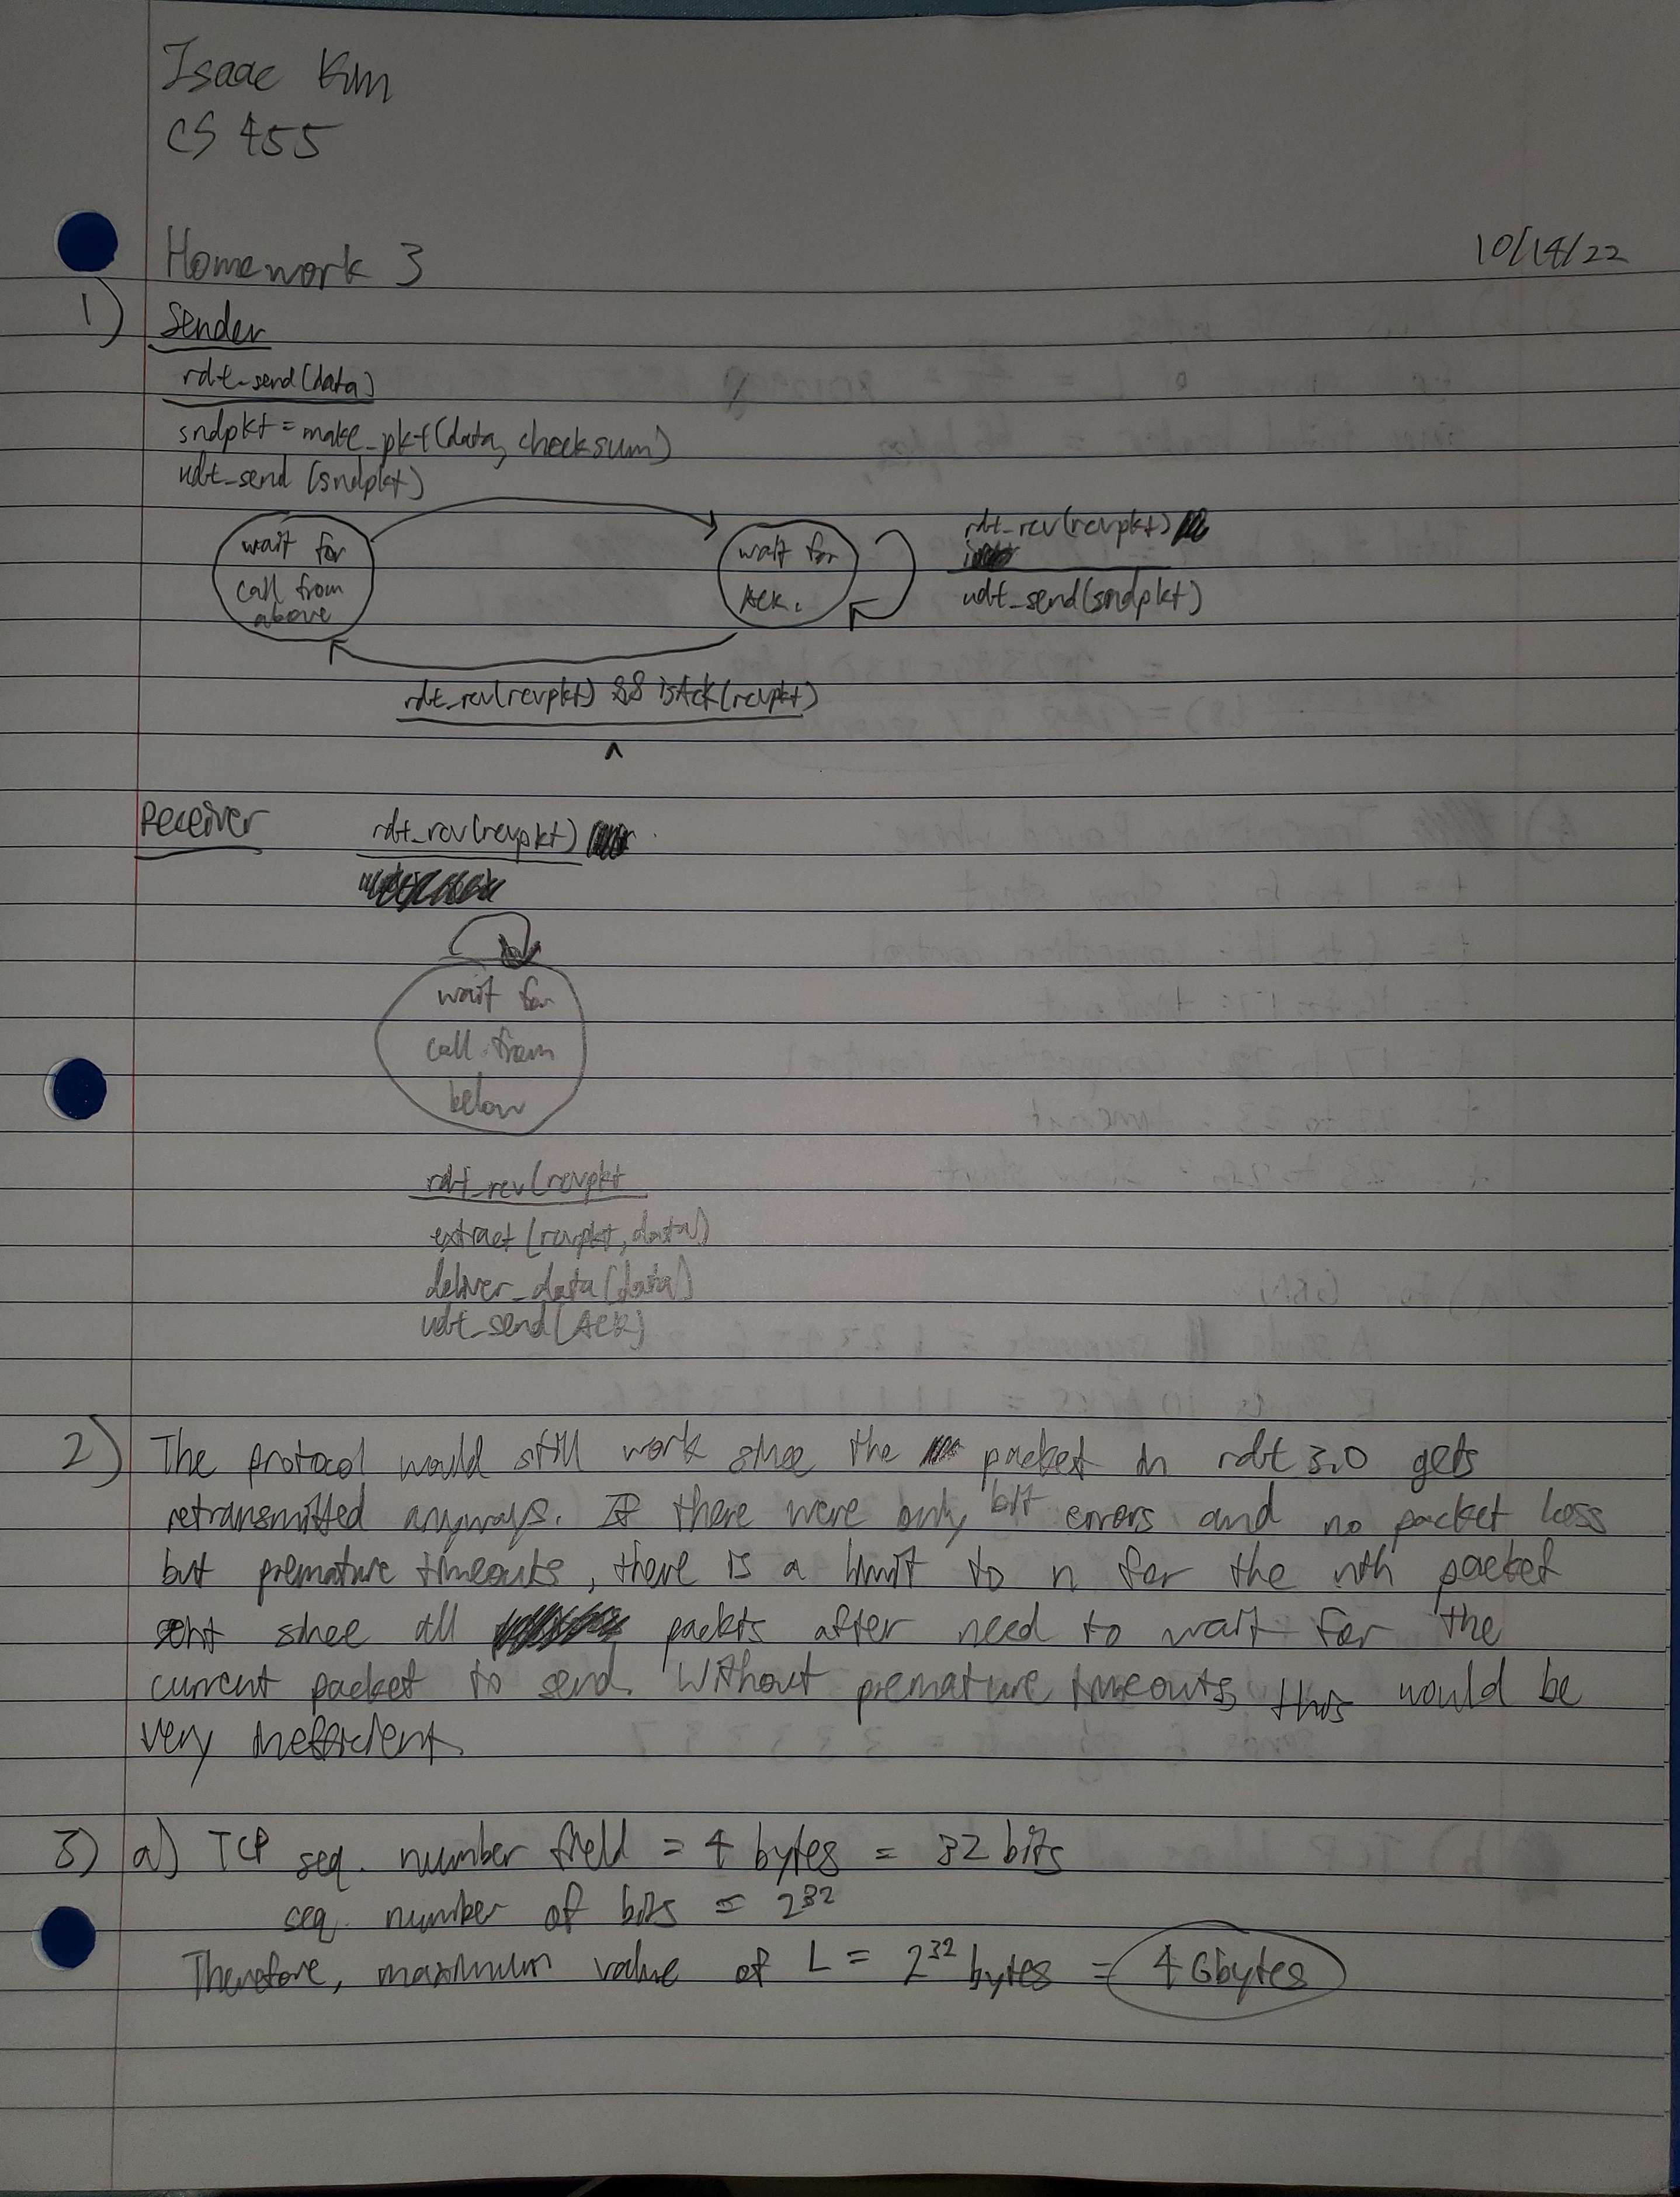 Isaac Kim
CS 455
Homework 3
10/14/22
1) Sender
rdt_send(data)
sndpkt = make_pkt(data, checksum)
udt_send (sndpkt)
wait for
call from
above
wait for
ACK.
rdt_rcv(rcvpkt)
udt_send(sndpkt)
rdt_rcv(rcvpkt) && isAck(rcvpkt)
^
Receiver
rdt_rcv(rcvpkt)
wait for
call from
below
rdt_rcv(rcvpkt
extract (rcvpkt, data)
deliver_data(data)
udt_send(ACK)
2) The protocol would still work since the packet in rdt 3.0 gets
retransmitted anyways. If there were only bit errors and no packet loss
but premature timeouts, there is a limit to n for the nth packet
sent since all packets after need to wait for the
current packet to send. Without premature timeouts, this would be
very inefficient.
3) a) TCP seq. number field = 4 bytes = 32 bits
seq. number of bits = 2^32
Therefore, maximum value of L = 2^32 bytes = 4 Gbytes